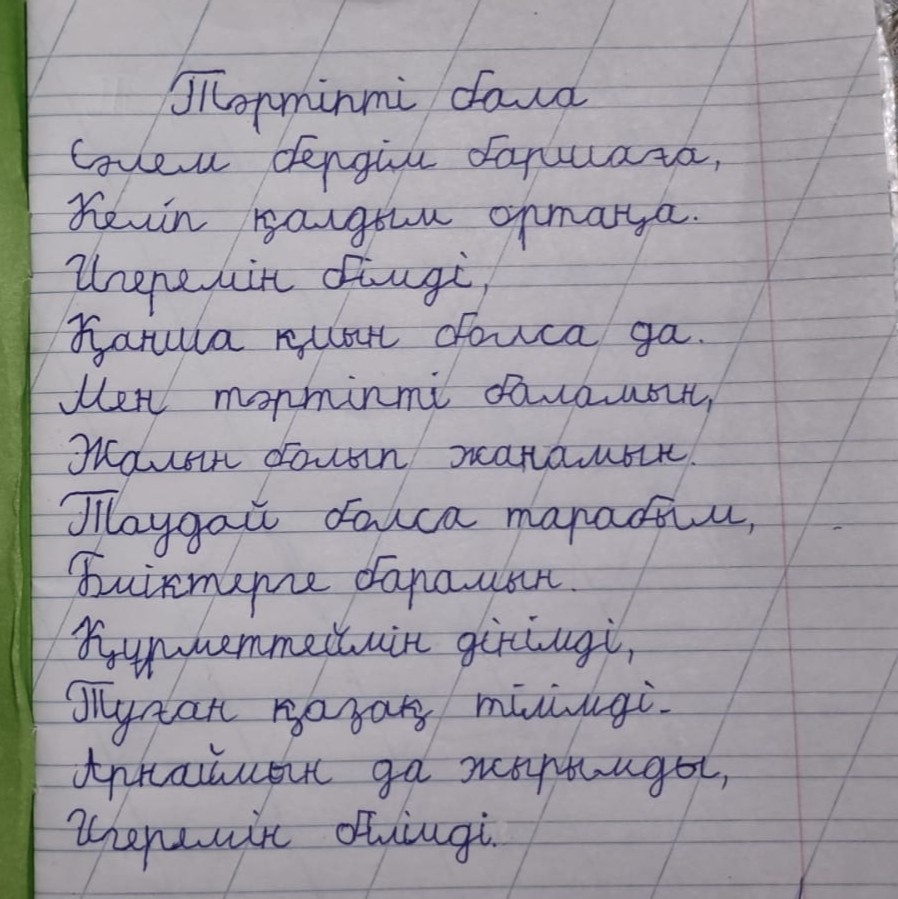 Тәртіпті бала
Сәлем бердім баршаға,
Келіп қалдым ортаңа.
Игеремін білімді,
Қанша қиын болса да.
Мен тәртіпті баламын,
Жалын болып жанамын.
Таудай болса тарабым,
Биіктерге барамын.
Құрметтеймін дінімді,
Туған қазақ тілімді.
Арнаймын да жырымды,
Игеремін білімді.